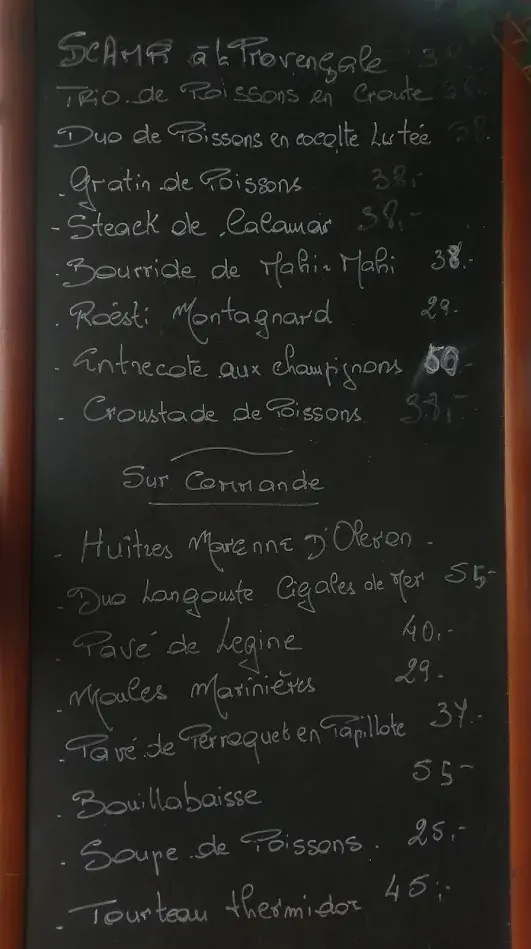 SCAMPI à la Provençale 38
TRIO de Poissons en Croute 38
Duo de Poissons en cocotte Lutée 38
- Gratin de Poissons 38.-
- Steack de Calamar 38.-
- Bourride de Mahi-Mahi 38.-
- Roësti Montagnard 29.-
- Entrecote aux champignons 50.-
- Croustade de Poissons 38.-
Sur Commande
- Huîtres Marenne D'Oleron -
- Duo Langouste Cigales de Mer 55-
- Pavé de Legine 40.-
- Moules Marinières 29.-
- Pavé de Perroquet en Papillote 37.-
- Bouillabaisse 55-
- Soupe de Poissons. 25.-
- Tourteau thermidor 45.-